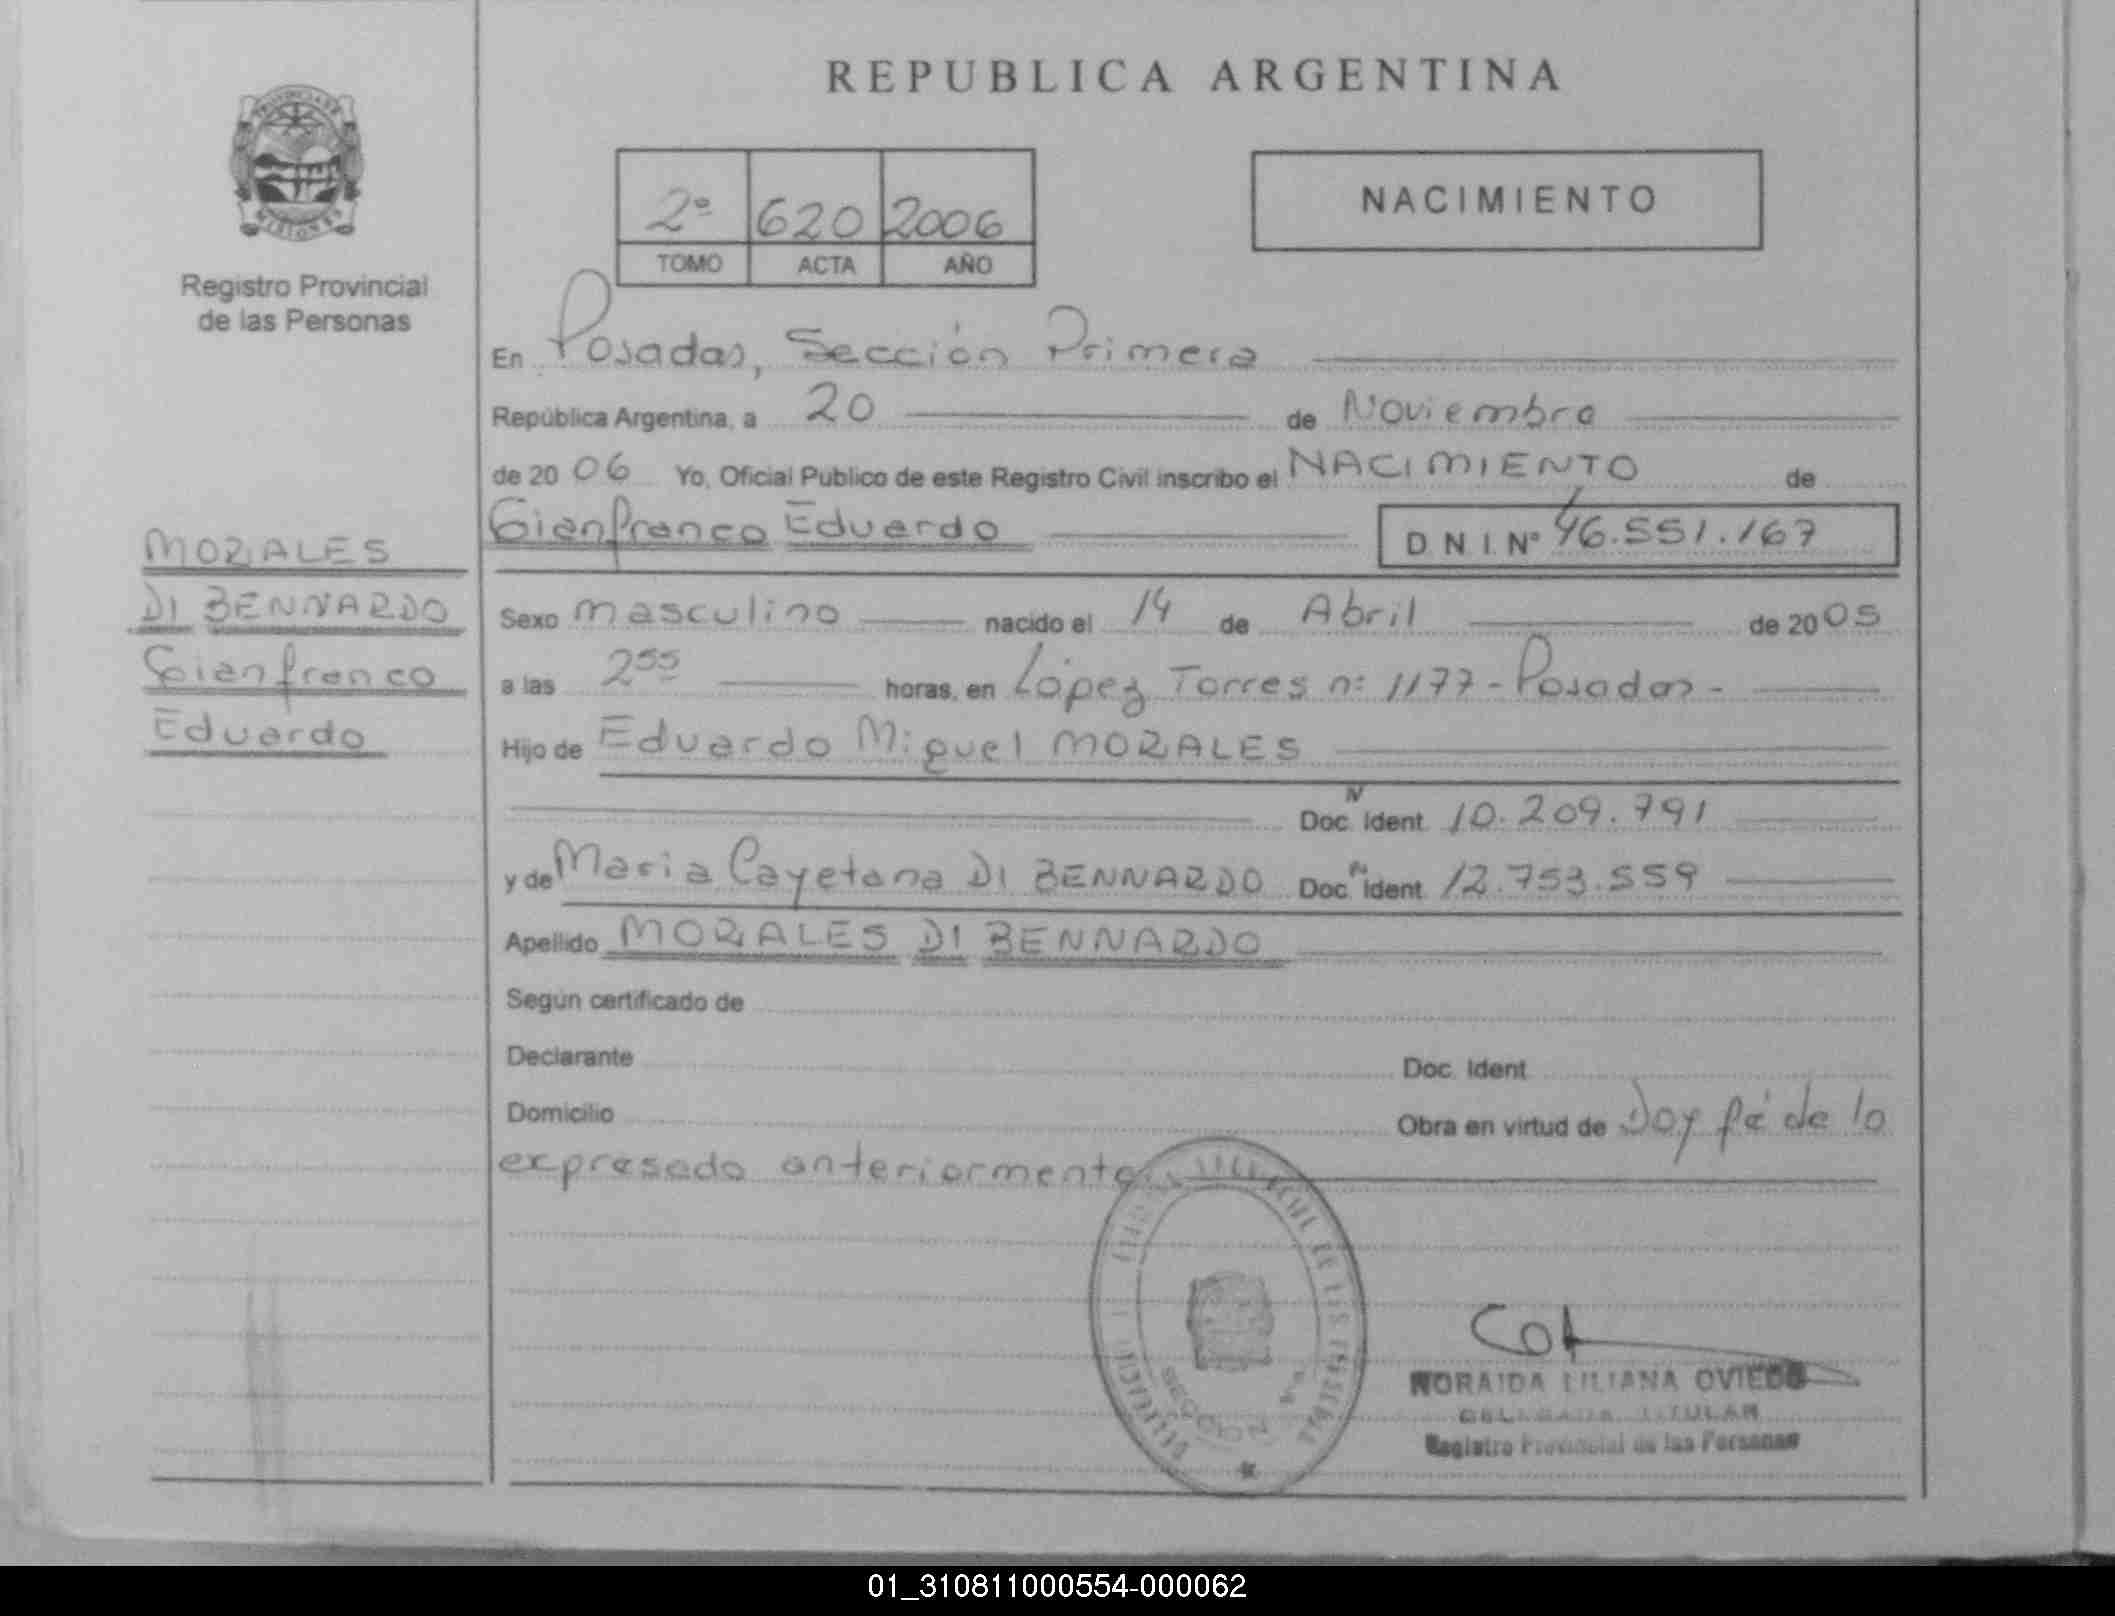 REPUBLICA ARGENTINA
PROVINCIA DE MISIONES
Registro Provincial
de las Personas
2º 620 2006
TOMO ACTA AÑO
NACIMIENTO
En Posadas, Sección Primera
República Argentina, a 20 de Noviembre
de 20 06 Yo, Oficial Publico de este Registro Civil inscribo el NACIMIENTO de
Gianfranco Eduardo D.N.I. Nº 46.551.167
MORALES
DI BENNARDO
Gianfranco
Eduardo
Sexo masculino nacido el 14 de Abril de 20 05
a las 2⁵⁵ horas, en López Torres nº 1177 - Posadas -
Hijo de Eduardo Miguel MORALES
Doc. Ident. 10.209.791
y de Maria Cayetana DI BENNARDO Doc. Ident. 12.753.559
Apellido MORALES DI BENNARDO
Según certificado de
Declarante Doc. Ident.
Domicilio Obra en virtud de Doy fé de lo
expresado anteriormente
SECCION
NORAIDA LILIANA OVIEDO
DELEGADA TITULAR
Registro Provincial de las Personas
01_310811000554-000062